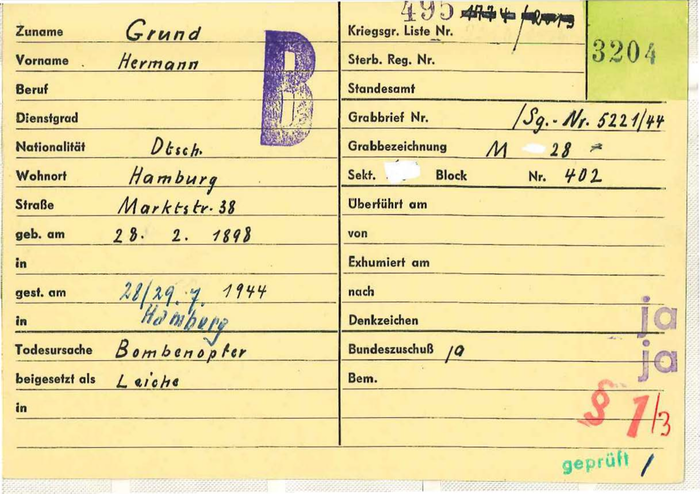 Zuname Grund
Vorname Hermann
Beruf
Dienstgrad
Nationalität Dtsch.
Wohnort Hamburg
Straße Marktstr. 38
geb. am 28. 2. 1898
in
gest. am 28/29. 7. 1944
in Hamburg
Todesursache Bombenopfer
beigesetzt als Leiche
in
B
495
Kriegsgr. Liste Nr.
Sterb. Reg. Nr.
Standesamt
3204
Grabbrief Nr. /Sg.-Nr. 5221/44
Grabbezeichnung M 28
Sekt. Block Nr. 402
Überführt am
von
Exhumiert am
nach
Denkzeichen ja
Bundeszuschuß ja ja
Bem.
§ 1/3
geprüft